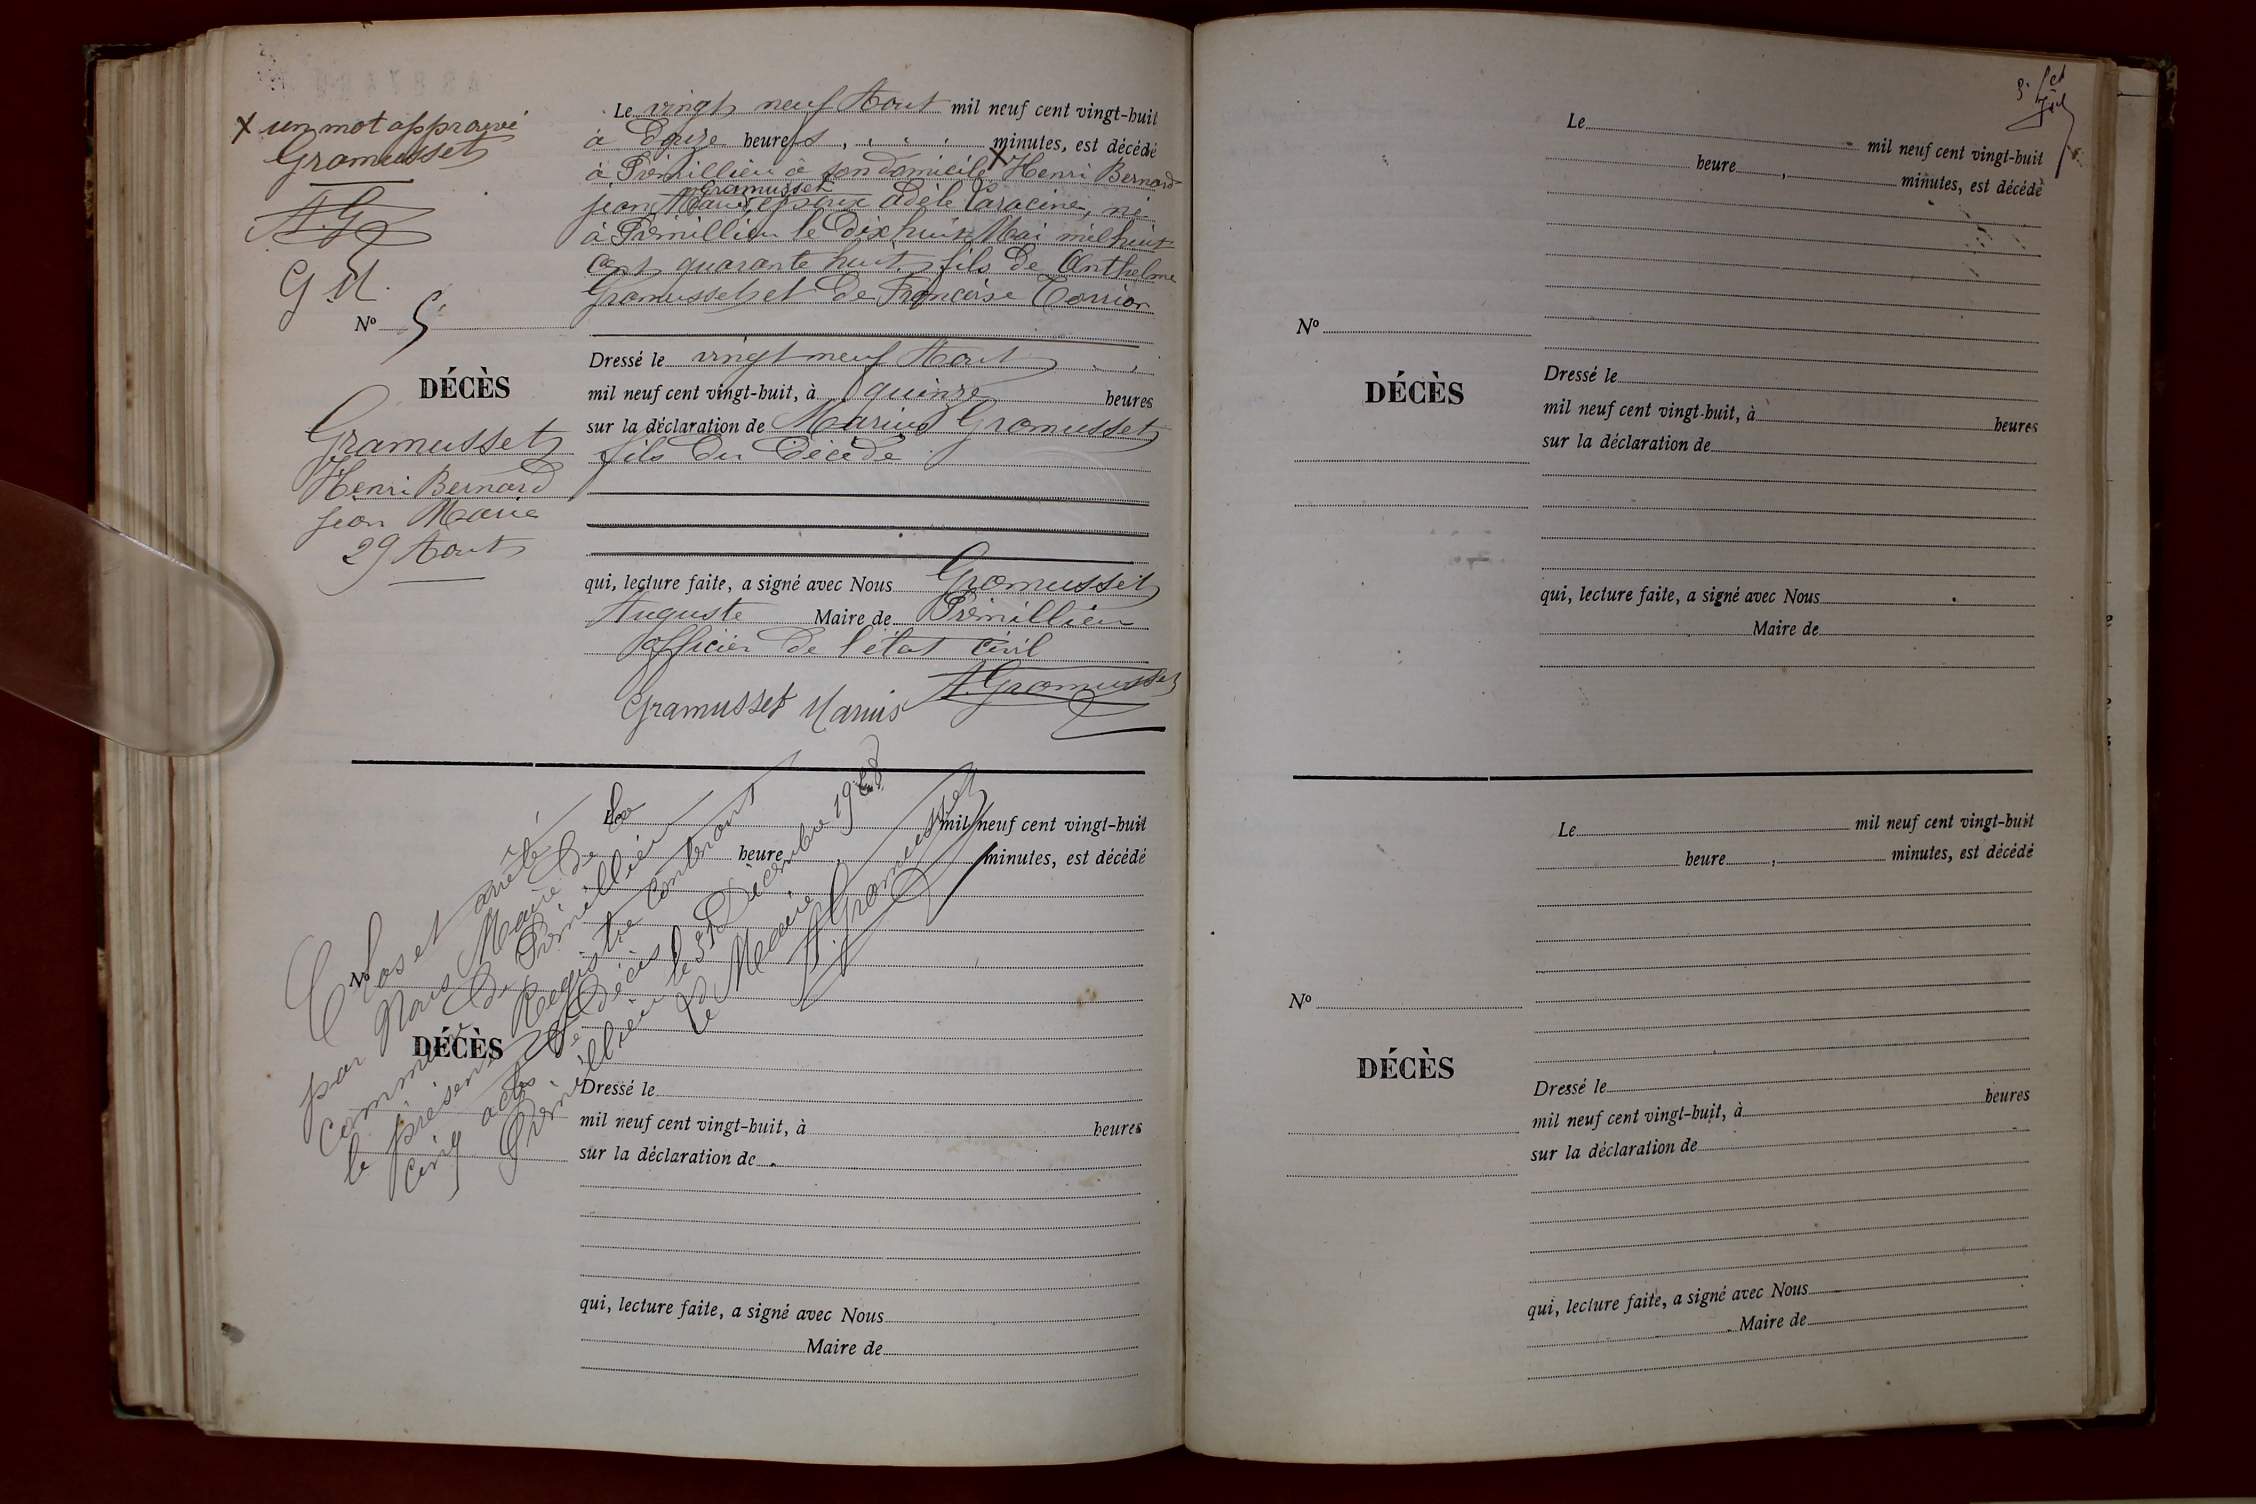 X un mot approuvé
Gramusset
A. G
G M.
Nº 5
DÉCÈS
Gramusset
Henri Bernard
jean Marie
29 Aout
Le vingt neuf Aout mil neuf cent vingt-huit
à Douze heures, minutes, est décédé
à Prémillieu à son domicile X Henri Bernard
Gramusset
jean Marie, époux Adèle Laracine, né
à Prémillieu le Dix huit Mai mil huit
cent quarante huit, fils de Anthelme
Gramusset et De Françoise
Dressé le vingt neuf Aout
mil neuf cent vingt-huit, à quinze heures
sur la déclaration de Marius Gramusset
fils du Décédé
qui, lecture faite, a signé avec Nous Gramusset
Auguste Maire de Prémillieu
officier de l'état civil
Gramusset Marius A. Gramusset
Clos et arrêté
par Nous Maire de la
commune de Prémillieu
le présent Registre contenant
cinq actes de Décès
Prémillieu le 31 Décembre 1928
Le Maire
A. Gramusset
Le mil neuf cent vingt-huit
heure, minutes, est décédé
Nº
DÉCÈS
Dressé le
mil neuf cent vingt-huit, à heures
sur la déclaration de
qui, lecture faite, a signé avec Nous
Maire de
Le mil neuf cent vingt-huit
heure, minutes, est décédé
Nº
DÉCÈS
Dressé le
mil neuf cent vingt-huit, à heures
sur la déclaration de
qui, lecture faite, a signé avec Nous
Maire de
Le mil neuf cent vingt-huit
heure, minutes, est décédé
Nº
DÉCÈS
Dressé le
mil neuf cent vingt-huit, à heures
sur la déclaration de
qui, lecture faite, a signé avec Nous
Maire de